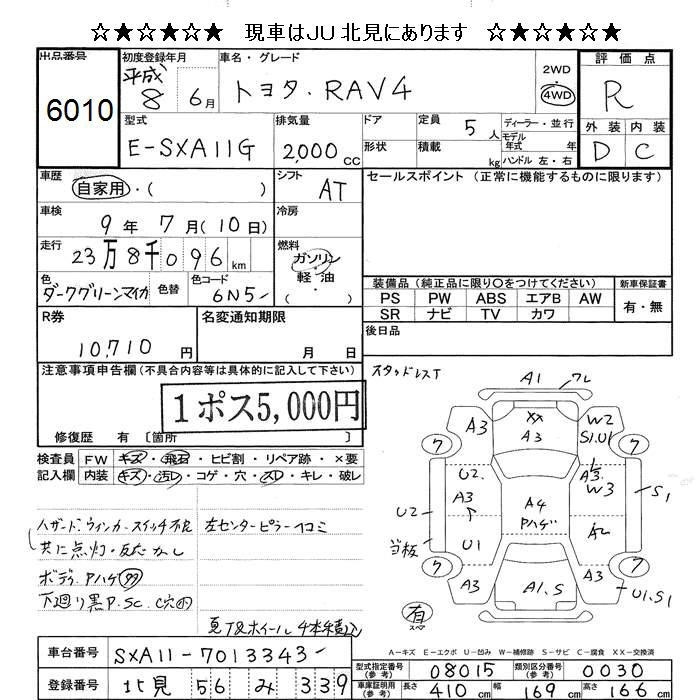 ☆★☆★☆★ 現車はJU北見にあります ☆★☆★☆★
出品番号
6010
初度登録年月
平成
8 6月
車名・グレード
トヨタ.RAV4
2WD
4WD
評価点
R
外装 内装
D C
型式
E-SXA11G
排気量
2,000cc
ドア
形状
定員 5人
積載 kg
ディーラー・並行
モデル年式 年
ハンドル 左・右
車歴
自家用・( )
シフト
AT
セールスポイント(正常に機能するものに限ります)
車検
9年7月(10日)
冷房
走行
23万8千096km
燃料
ガソリン・
軽・油
色
ダークグリーンマイカ
色替
色コード
6N5-
装備品(純正品に限り〇をつけてください)
新車保証書
PS PW ABS エアB AW
SR ナビ TV カワ
有・無
R券
10,710円
名変通知期限
月 日
後日品
注意事項申告欄(不具合内容等は具体的に記入して下さい)
1ポス5,000円
修復歴 有〔箇所 〕
検査員
記入欄
FW キズ・飛石・ヒビ割・リペア跡・×要
内装 キズ・汚レ・コゲ・穴・スレ・キレ・破レ
スタッドレスT
A1 ワレ
A3 XX A3 W2 S1.U1
7 7
U2. A3 A3. W3 S1
U2 A4 Pハゲ A2
当板 U1
7 7
A3 A1.S A3 U1.S1
有 スペア
ハザード.ウィンカースイッチ不良 左センターピラーヘコミ
共に点灯・反応なし
ボディPハゲ 多
下廻り黒P.SC.C穴有
夏T&ホイール4本積込
A-キズ E-エクボ U-凹み W-補修跡 S-サビ C-腐食 XX-交換済
車台番号
SXA11-7013343-
登録番号
北見 56 み 339
型式指定番号(参考) 08015
類別区分番号(参考) 0030
車庫証明用(参考) 長さ 410cm 幅 169cm 高さ 166cm